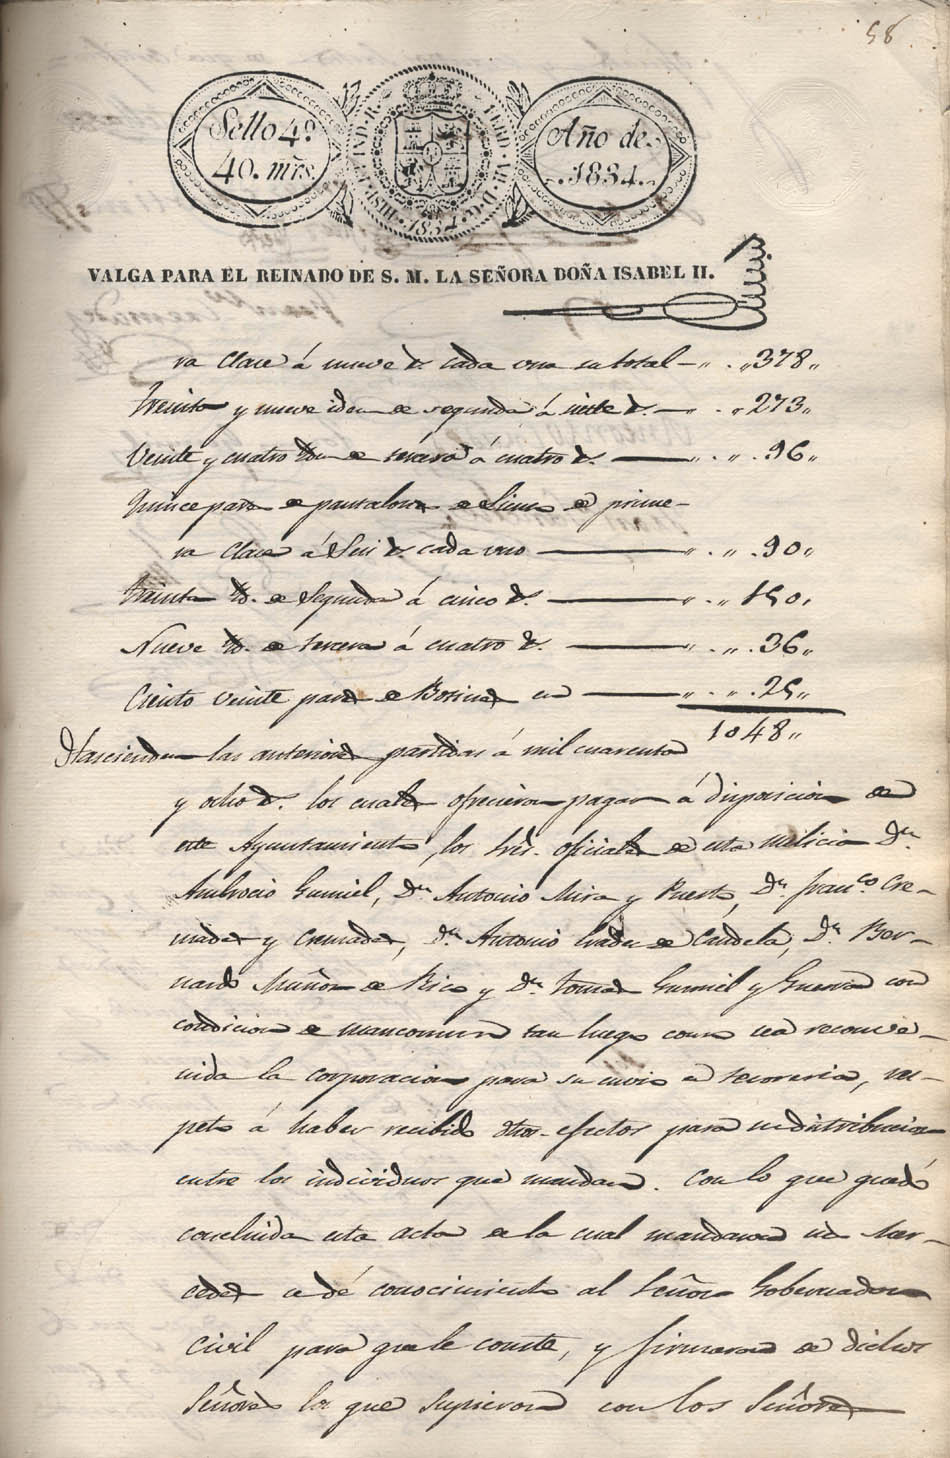 58
Sello 4º.
40. mrs.
HISP. ET IND. R. FERD. VII. D. G. 1834.
Año de
1834.
VALGA PARA EL REINADO DE S. M. LA SEÑORA DOÑA ISABEL II.
ra clase á nueve rs. cada una su total „ . „ 378 „
Treinta y nueve idem de segunda á siete rs. „ . „ 273 „
Veinte y cuatro idm de tercera á cuatro rs. „ . „ . 96 „
Quince pares de pantalones de lienzo de prime-
ra clase á seis rs. cada uno „ . „ . 90 „
Treinta id. de segunda á cinco rs. „ . „ 150 „
Nueve id. de tercera á cuatro rs. „ . „ . 36 „
Ciento veinte pares de Botines en „ . „ . 25 „
1048 „
Hascienden las anteriores partidas á mil cuarenta
y ocho rs. los cuales ofrecieron pagar á disposicion de
este Ayuntamiento, los Sres. oficiales de esta milicia Dn.
Ambrocio Gumiel, Dn. Antonio Mira y Puerto, Dn. Franco. Cre-
mades y Cremades, Dn. Antonio Prades de Candela, Dn. Ber-
nardo Muñoz de Rico y Dn. Tomas Gumiel y Guerra con
condicion de mancomun tan luego como sea reconve-
nida la corporacion para su envio á tesoreria, res-
peto á haber recibido otros efectos para su distribucion
entre los individuos que mandan. Con lo que quedó
concluida esta acta de la cual mandaron sus Mer-
cedes se dé conocimiento al Señor Gobernador
civil para que le conste, y firmaron de dichos
Señores los que supieron con los Señores